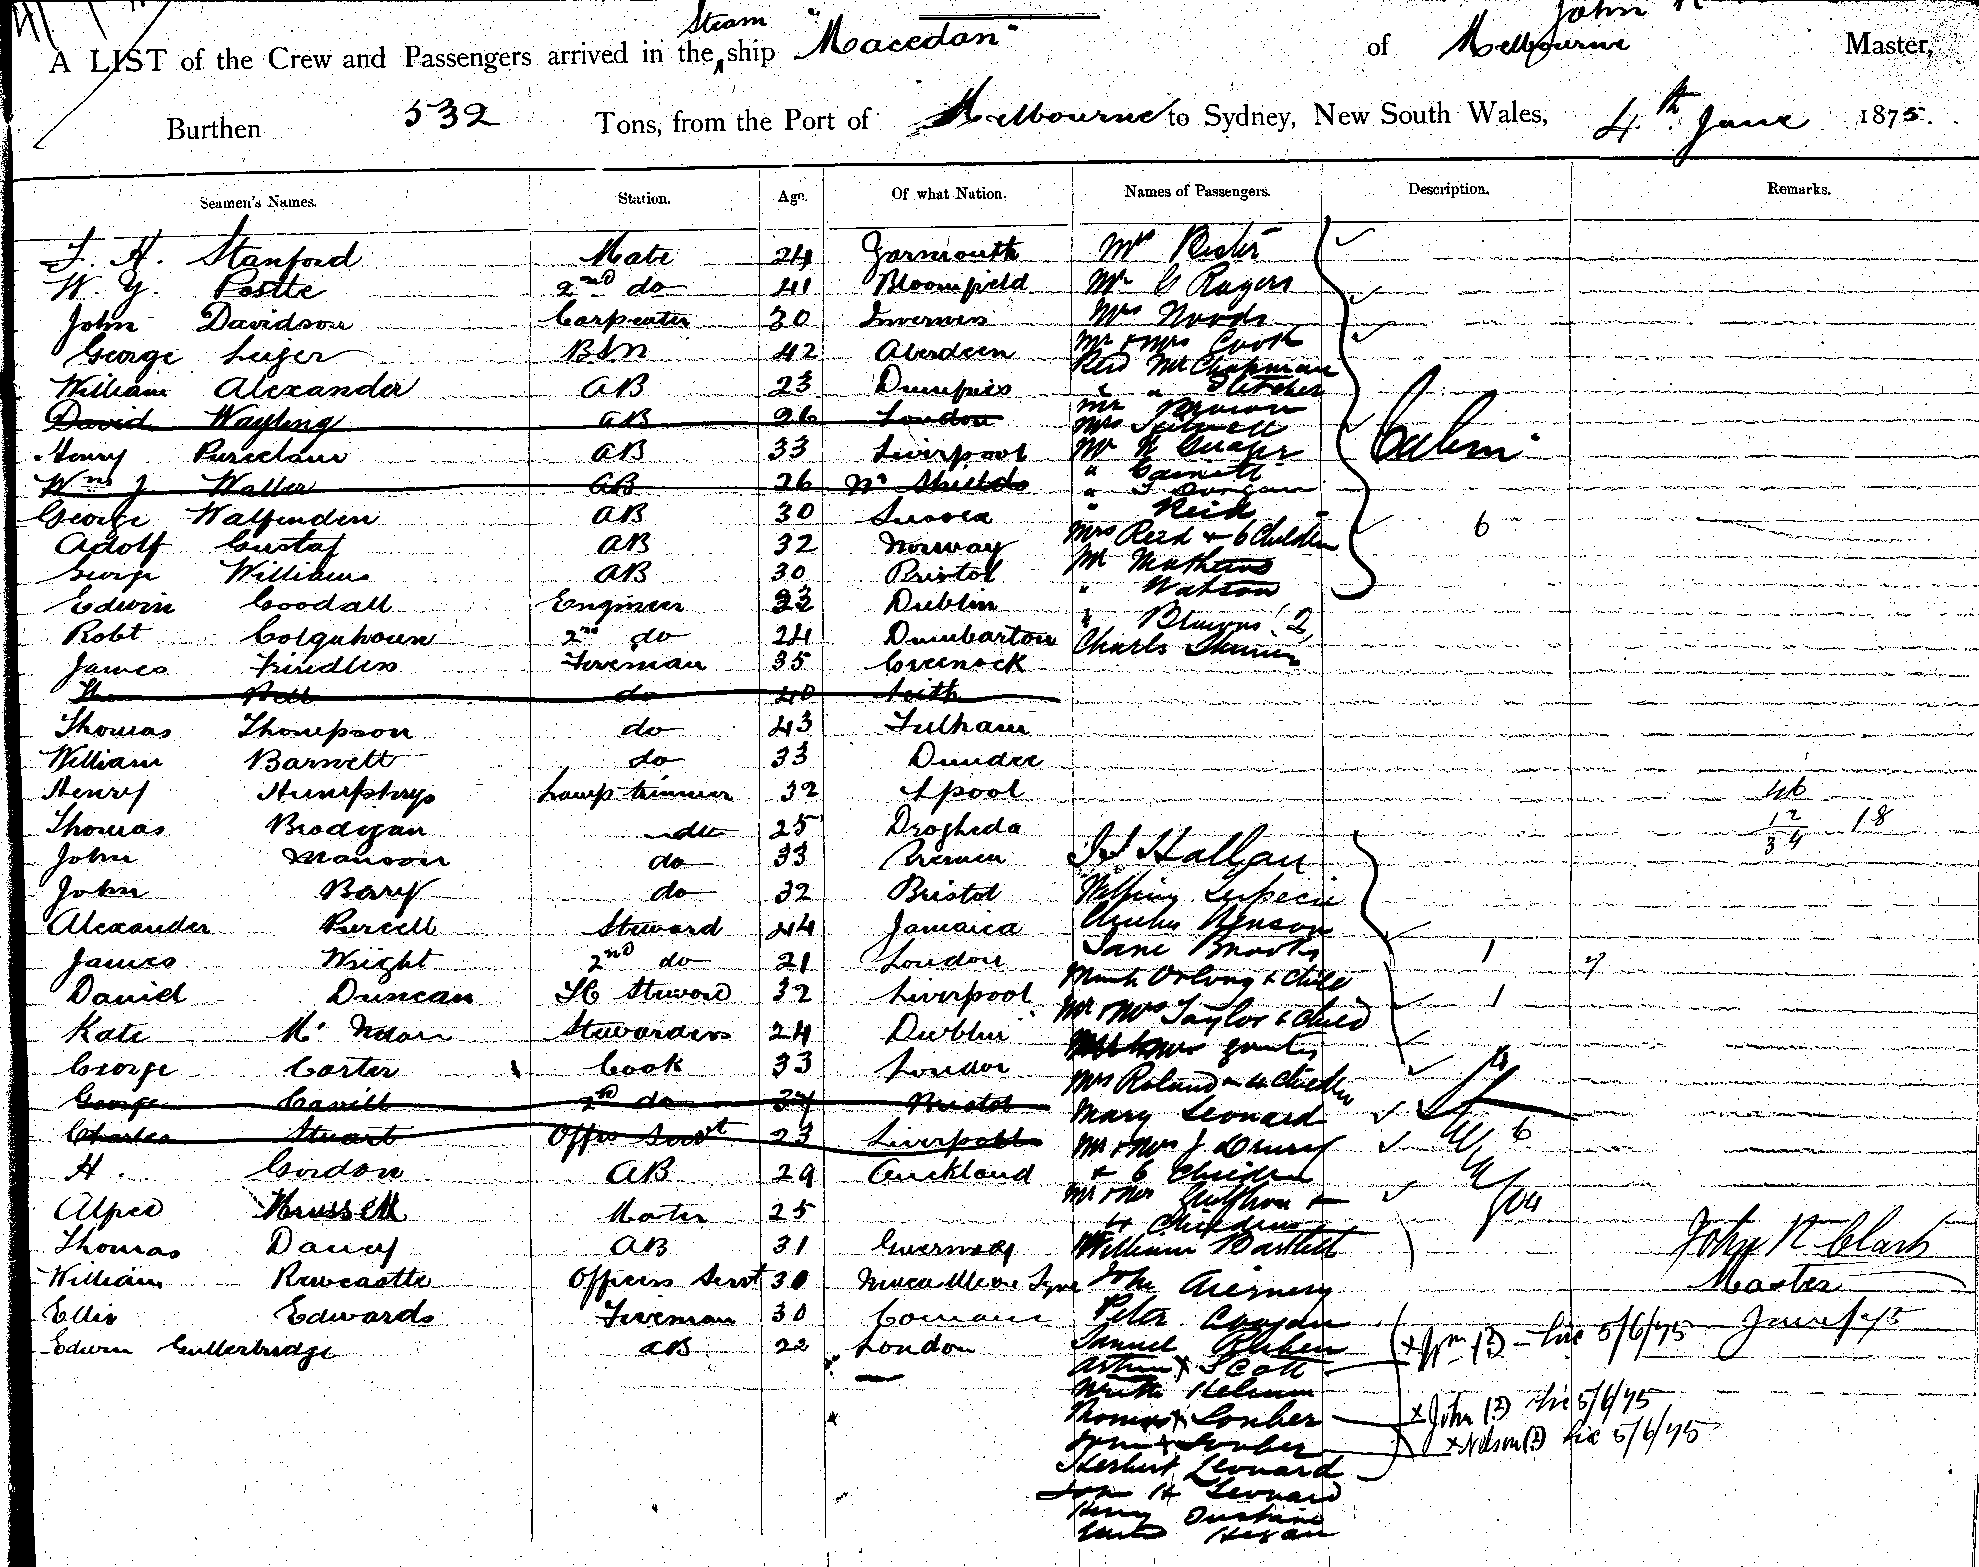 John R
A LIST of the Crew and Passengers arrived in the Steam ship "Macedon" of Melbourne Master,
Burthen 532 Tons, from the Port of Melbourne to Sydney, New South Wales, 4th June 1875.
Seamen's Names. Station. Age. Of what Nation. Names of Passengers. Description. Remarks.
Stanford Mate 24 Yarmouth Mrs
W. Y. Postle 2nd do 41 Bloomfield Mr C Rogers
John Davidson Carpenter 30 Inverness Mrs Woods
George Leiper BSN 42 Aberdeen Mr & Mrs Cook
Revd Mr Chapman
William Alexander AB 23 Dumfries " " Fletcher
Mr Brown
David Wayling AB 26 London Mrs
Henry Purcelane AB 33 Liverpool Mr Cabin
" Garnett
Wm J Waller AB 26 No Shields "
George Walfenden AB 30 Sussex " Reid
Adolf Gustaf AB 32 Norway Mrs Reid & 6 Children 6
George Williams AB 30 Bristol Mr Mathews
Edwin Goodall Engineer Dublin " Watson
Robt Colquhoun 2nd do 24 Dumbarton "
James Frindless Fireman 35 Greenock Charles
Bell do 40 Leith
Thomas Thompson do 43 Fulham
William Barnett do 33 Dundee
Henry Humphrys Lamp trimmer 32 Lpool 46
Thomas Brodigan 25 Drogheda 12 18
34
John Manson do 33 Bremen Hallgan
John Bary do 32 Bristol
Alexander Purcell Steward 44 Jamaica Benson
James Wright 2nd do 21 London Jane Brooks 1
David Duncan SC Steward 32 Liverpool & Child 1
Mr & Mrs Taylor & Child
Kate Mc Stewardess 24 Dublin
George Carter Cook 33 London Mrs Roland & 4 Children
George Cavill 2nd do 37 Bristol Mary Leonard
Charles Stuart Offrs Servt 23 Liverpool Mr & Mrs J Drury 6
H. Gordon AB 29 Auckland & 6 Children
Mr & Mrs &
Alfred 25 4 Children
Thomas Dancy AB 31 Guernsey William Bartlett John R Clark
William Rewcastle Officers Servt 30 John Master
Ellis Edwards Fireman 30 Peter June /75
Edwin Gutterbridge AB 22 London Samuel Reuben x Wm (B) 5/6/75
Arthur x Scott
Thomas x x John (B) 5/6/75
x x Nelson (B) 5/6/75
Herbert Leonard
John H Leonard
Henry
Hegan